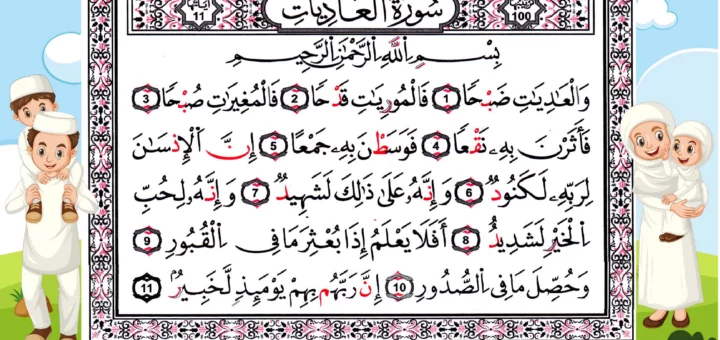 100 سُورَةُ العَادِيَاتِ 11
بِسْمِ اللَّهِ الرَّحْمَٰنِ الرَّحِيمِ
وَالْعَادِيَاتِ ضَبْحًا 1 فَالْمُورِيَاتِ قَدْحًا 2 فَالْمُغِيرَاتِ صُبْحًا 3
فَأَثَرْنَ بِهِۦ نَقْعًا 4 فَوَسَطْنَ بِهِۦ جَمْعًا 5 إِنَّ الْإِنسَانَ
لِرَبِّهِۦ لَكَنُودٌ 6 وَإِنَّهُۥ عَلَىٰ ذَالِكَ لَشَهِيدٌ 7 وَإِنَّهُۥ لِحُبِّ
الْخَيْرِ لَشَدِيدٌ 8 أَفَلَا يَعْلَمُ إِذَا بُعْثِرَ مَا فِي الْقُبُورِ 9
وَحُصِّلَ مَا فِي الصُّدُورِ 10 إِنَّ رَبَّهُم بِهِمْ يَوْمَئِذٍ لَّخَبِيرٌۢ 11